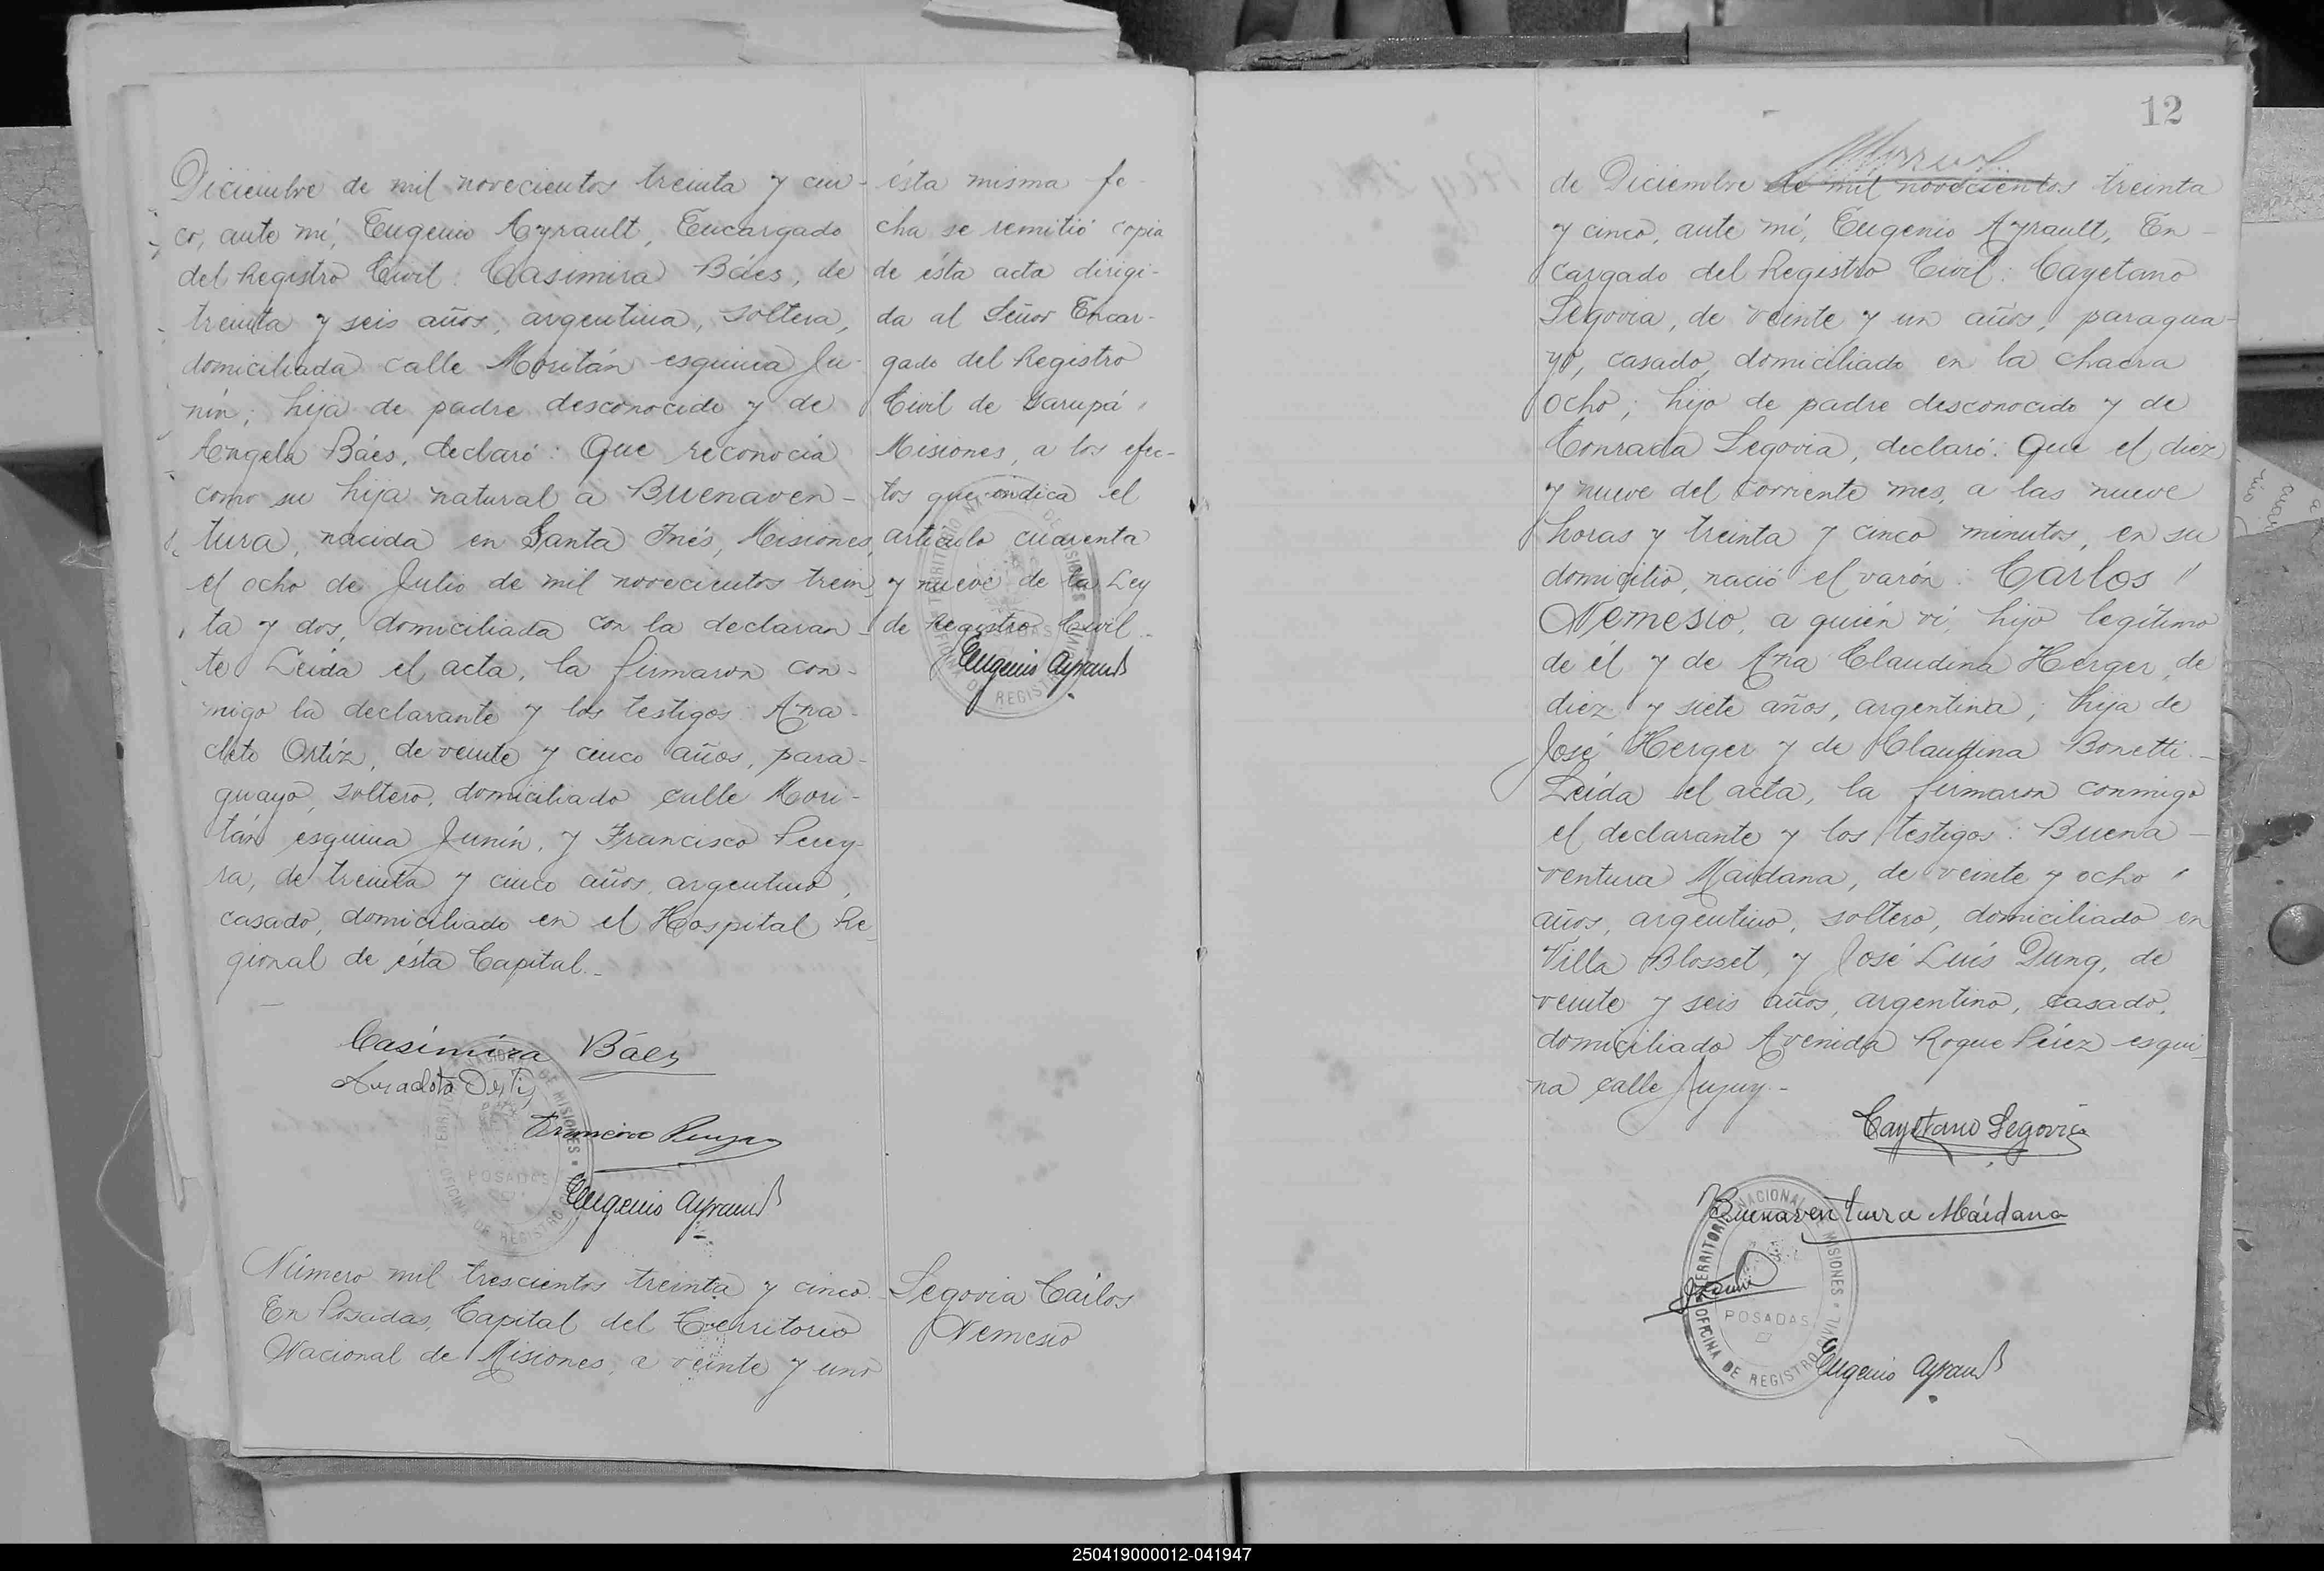 Diciembre de mil novecientos treinta y cin-
co, ante mí, Eugenio Ayrault, Encargado
del Registro Civil: Casimira Báes, de
treinta y seis años, argentina, soltera,
domiciliada calle Moritán esquina Ju-
nín; hija de padre desconocido y de
Angela Báes, declaró: Que reconocía
como su hija natural a Buenaven-
tura, nacida en Santa Inés, Misiones,
el ocho de Julio de mil novecientos trein-
ta y dos, domiciliada con la declaran-
te Leída el acta, la firmaron con-
migo la declarante y los testigos: Ana-
cleto Ortíz, de veinte y cinco años, para-
guayo, soltero, domiciliado calle Mori-
tán esquina Junín, y Francisco Perey-
ra, de treinta y cinco años, argentino,
casado, domiciliado en el Hospital Re-
gional de ésta Capital.-
Casimira Báes
Anacleto Ortiz
Francisco Pereyra
Eugenio Ayrault
TERRITORIO NACIONAL DE MISIONES
POSADAS
OFICINA DE REGISTRO CIVIL
Número mil trescientos treinta y cinco.-
En Posadas, Capital del Territorio
Nacional de Misiones, a veinte y uno
ésta misma fe-
cha se remitió copia
de ésta acta dirigi-
da al Señor Encar-
gado del Registro
Civil de Garupá,
Misiones, a los efec-
tos que indica el
artículo cuarenta
y nueve de la Ley
de Registro Civil.-
Eugenio Ayrault
TERRITORIO NACIONAL DE MISIONES
POSADAS
OFICINA DE REGISTRO CIVIL
Segovia Cárlos
Nemesio
12
de Diciembre de mil novecientos treinta
y cinco, ante mí, Eugenio Ayrault, En-
cargado del Registro Civil: Cayetano
Segovia, de veinte y un años, paragua-
yo, casado, domiciliado en la chacra
ocho; hijo de padre desconocido y de
Conrada Segovia, declaró: Que el diez
y nueve del corriente mes, a las nueve
horas y treinta y cinco minutos, en su
domicilio, nació el varón: Carlos "
Nemesio, a quién ví, hijo legítimo
de él y de Ana Claudina Herger, de
diez y siete años, argentina; hija de
José Herger y de Claudina Bonetti.-
Leída el acta, la firmaron conmigo
el declarante y los testigos: Buena-
ventura Maidana, de veinte y ocho "
años, argentino, soltero, domiciliado en
Villa Blosset, y José Luís Dung, de
veinte y seis años, argentino, casado,
domiciliado Avenida Roque Pérez esqui-
na calle Jujuy.-
Cayetano Segovia
Buenaventura Maidana
TERRITORIO NACIONAL DE MISIONES
POSADAS
OFICINA DE REGISTRO CIVIL
Eugenio Ayrault
250419000012-041947